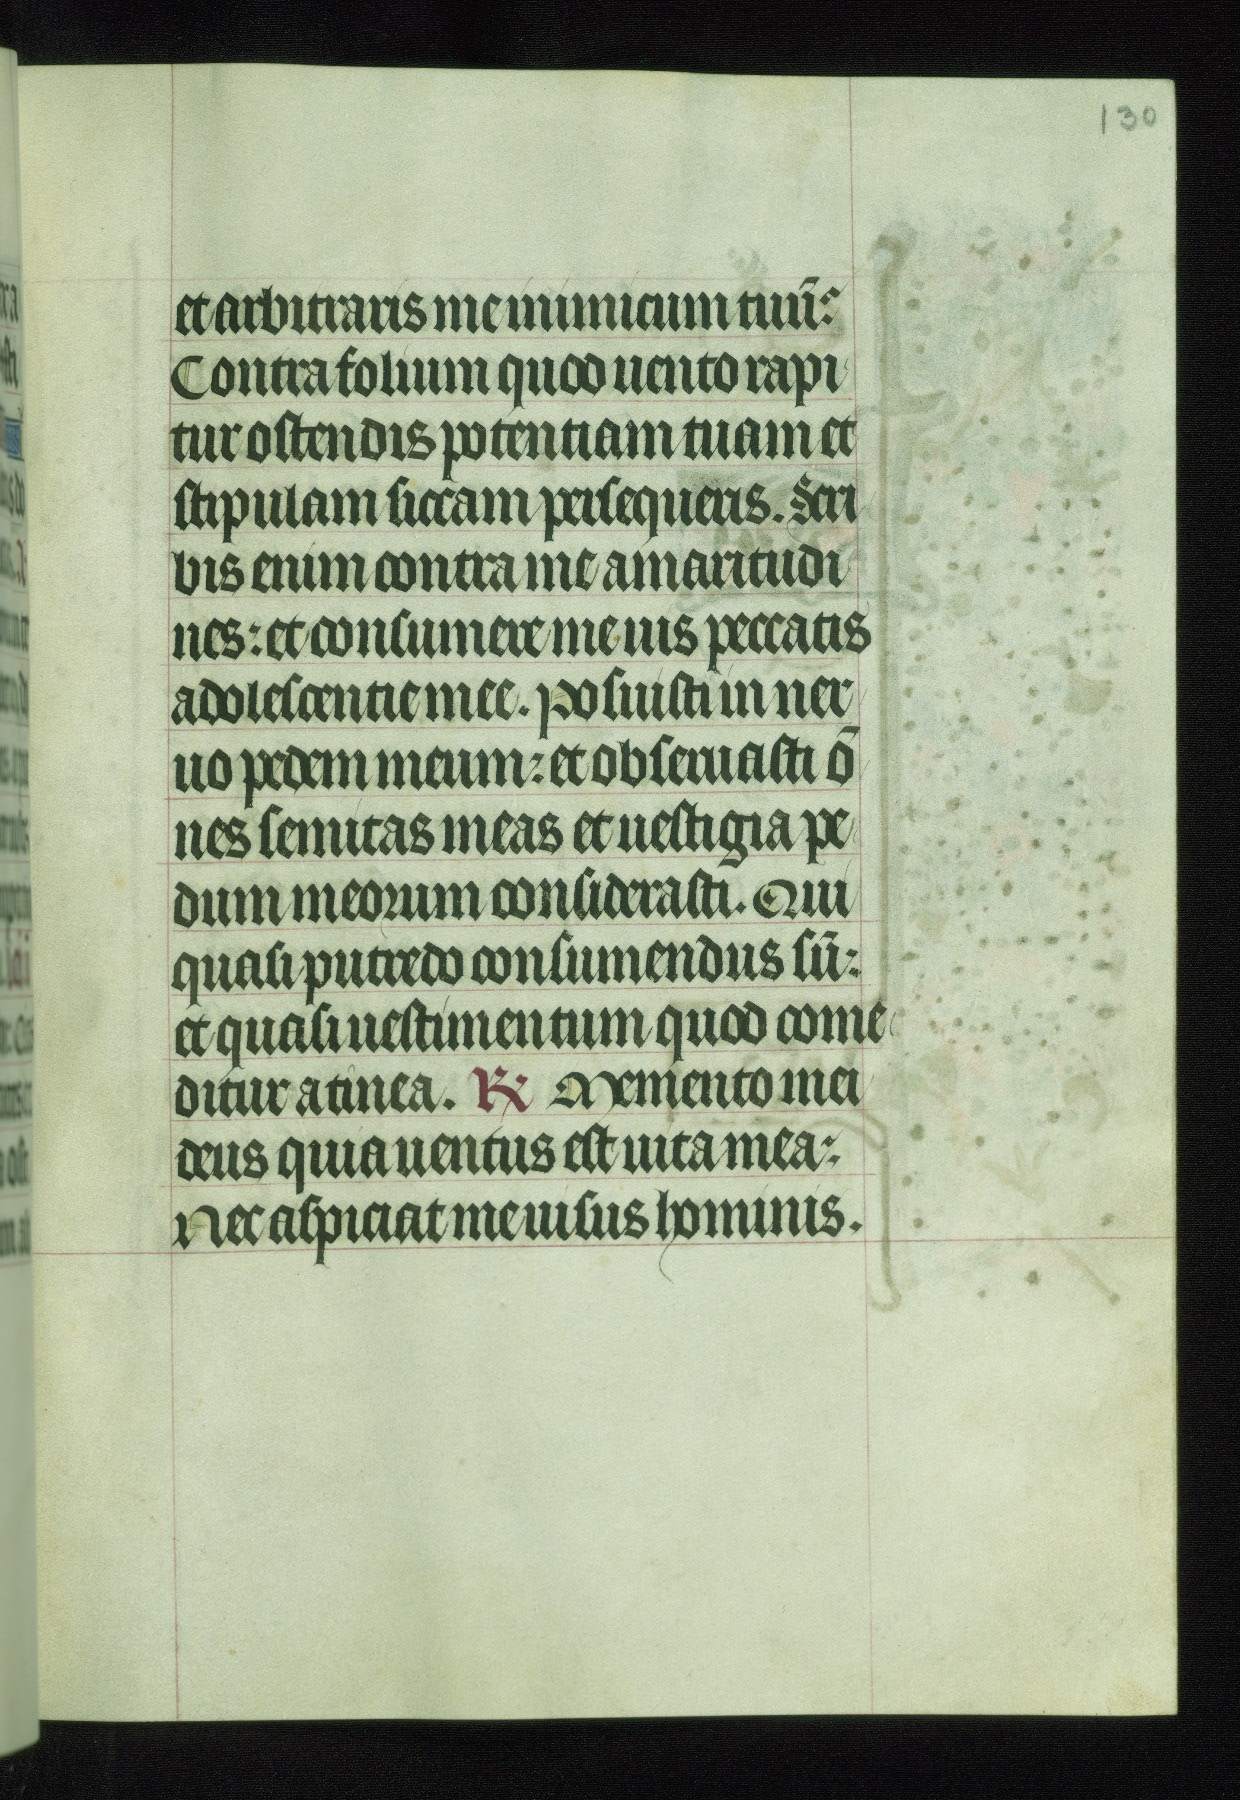 130
et arbitraris me inimicum tuū:
Contra folium quod uento rapi
tur ostendis potentiam tuam et
stipulam siccam persequeris. Scri
bis enim contra me amaritudi
nes: et consumere me uis peccatis
adolescentie mee. Posuisti in ner
uo pedem meum: et obseruasti ō
nes semitas meas et uestigia pe
dum meorum considerasti. Qui
quasi putredo consumendus sū:
et quasi uestimentum quod come
ditur a tinea. ℟ Memento mei
deus quia uentus est uita mea:
Nec aspiciat me uisus hominis.